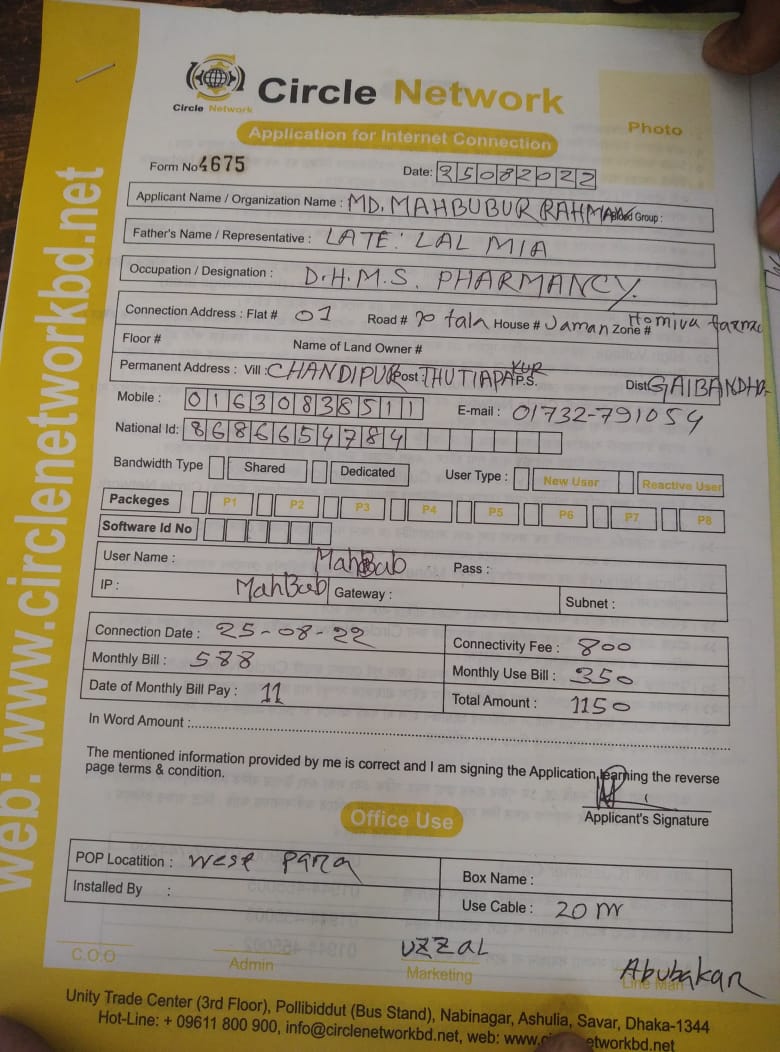 Circle Network
Circle Network
Application for Internet Connection
Photo
Form No 4675
Date: 25082022
Applicant Name / Organization Name : MD. MAHBUBUR RAHMAN Blood Group :
Father's Name / Representative : LATE: LAL MIA
Occupation / Designation : D.H.M.S. PHARMANCY.
Connection Address : Flat # 01 Road # tala House # Jaman Zone #
Floor # Name of Land Owner #
Permanent Address : Vill : CHANDIPUR Post : THUTIAPAKUR P.S. Dist: GAIBANDHA
Mobile : 01630838511 E-mail : 01732-791054
National Id: 8686654784
Bandwidth Type Shared Dedicated User Type : New User Reactive User
Packeges P1 P2 P3 P4 P5 P6 P7 P8
Software Id No
User Name : MahBab Pass :
IP : MahBab Gateway : Subnet :
Connection Date : 25-08-22 Connectivity Fee : 800
Monthly Bill : 588 Monthly Use Bill : 350
Date of Monthly Bill Pay : 11 Total Amount : 1150
In Word Amount :
The mentioned information provided by me is correct and I am signing the Application, learning the reverse
page terms & condition.
Applicant's Signature
Office Use
POP Locatition : West para Box Name :
Installed By : Use Cable : 20 m
UZZAL Abubakar
C.O.O Admin Marketing Line Man
Unity Trade Center (3rd Floor), Pollibiddut (Bus Stand), Nabinagar, Ashulia, Savar, Dhaka-1344
Hot-Line: + 09611 800 900, info@circlenetworkbd.net, web: www.c etworkbd.net
web: www.circlenetworkbd.net